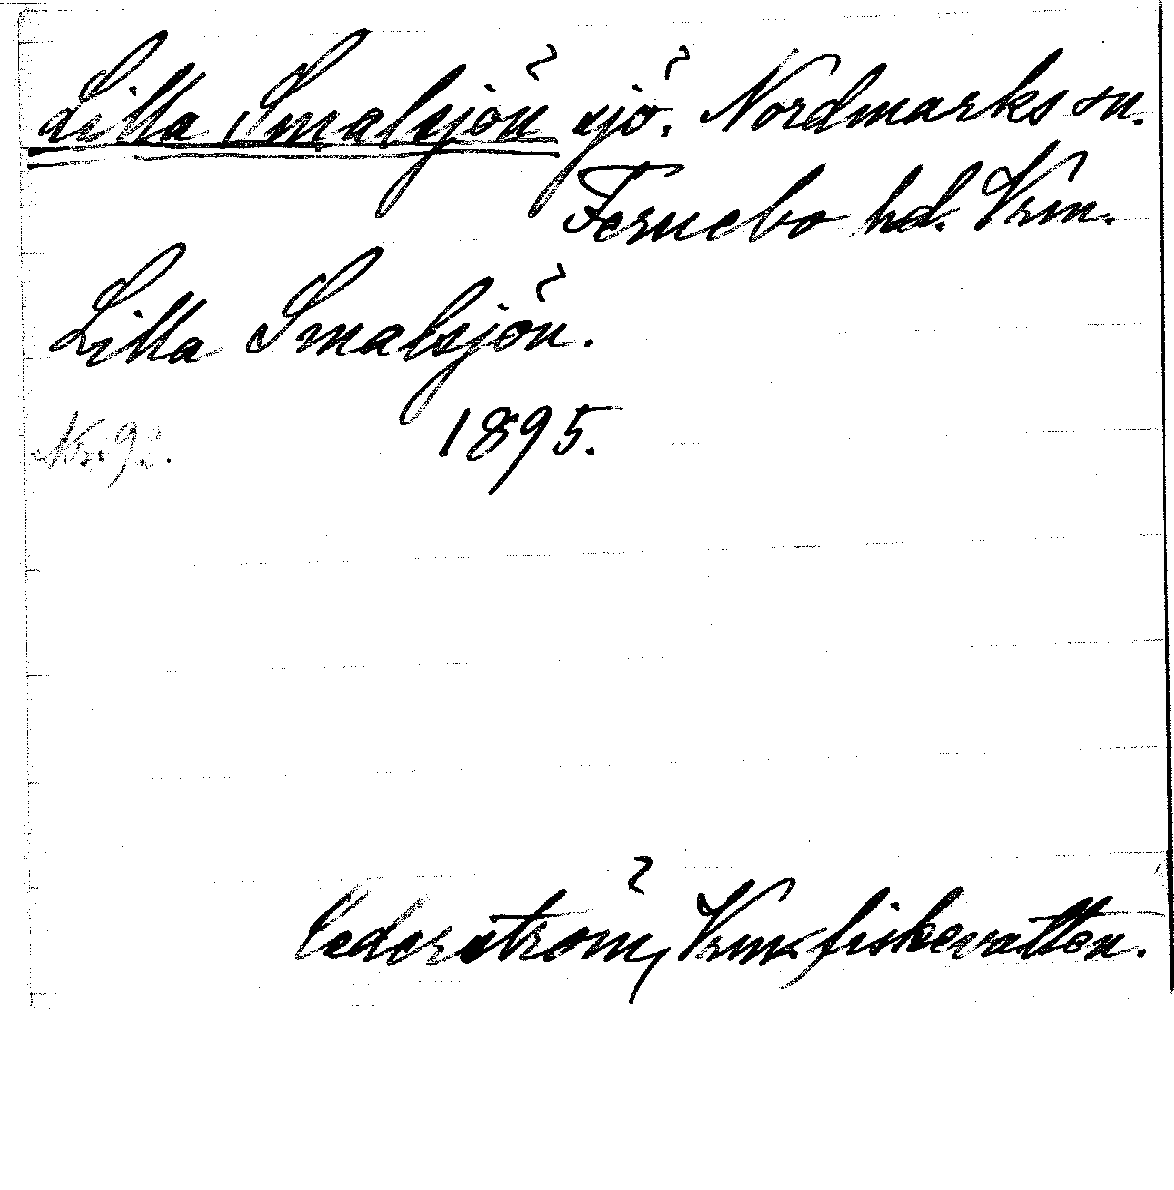 Lilla Smalsjön sjö. Nordmarks sn.
Fernebo hd. Vrm.
Lilla Smalsjön.
Nr. 92. 1895.
Cederström, Vrmks fiskevatten.